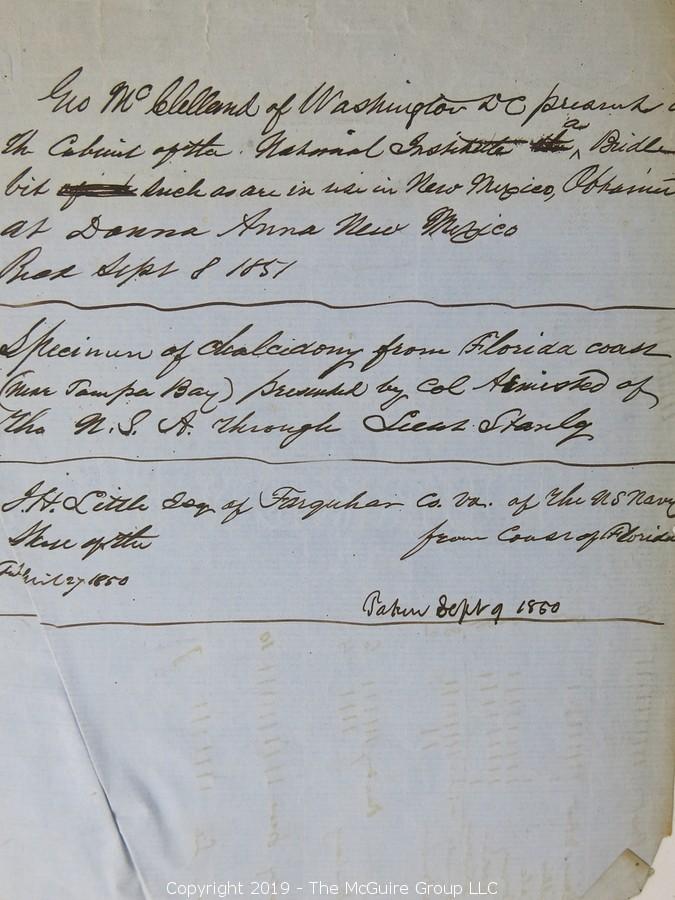 Geo McClelland of Washington DC presents
the Cabinet of the National Institute a Bridle
bit such as are in use in New Mexico, Obtained
at Donna Anna New Mexico
Recd Sept 8 1851
Specimen of Chalcidony from Florida coast
(near Tampa Bay) presented by Col of
the U.S.A. through Lieut Stanly
J.H. Little Esq of Farquhar Co. Va. of the US Navy
of the from Coast of Florida
27 1850
Taken Sept 9 1850
Copyright 2019 - The McGuire Group LLC